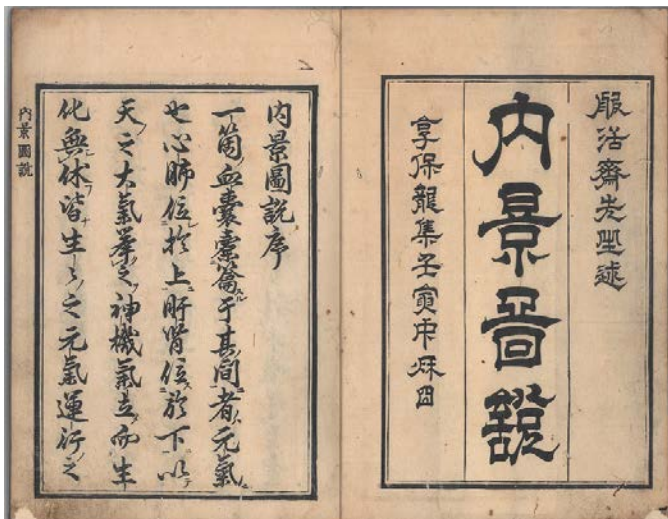 服活齋先生述
内景啚說
享保龍集壬寅中秌日
内景圖說序
一箇血囊橐籥于其間者元氣
也心肺位於上肝腎位於下以
天之大氣擧之神機氣立而生
化無休皆生々之元氣運行之
内景圖說